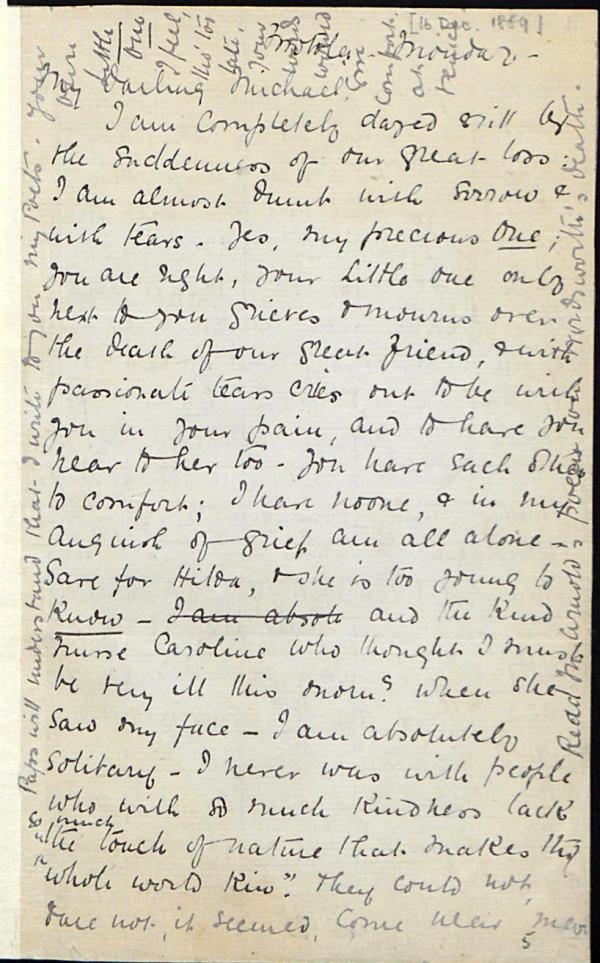 [16 Dec. 1889]
Monday -
My Darling Michael
I am completely dazed still by
the suddenness of our great loss:
I am almost dumb with sorrow &
with tears - Yes, my precious One;
you are right, your Little one only
next to you grieves & mourns over
the death of our great friend, & with
passionate tears cries out to be with
you in your pain, and to have you
near to her too - You have each other
to comfort; I have no one, & in my
anguish of grief am all alone -
Save for Hilda, & she is too young to
know - I am absolu and the kind
nurse Caroline who thought I must
be very ill this morng when she
saw my face - I am absolutely
solitary - I never was with people
who with so much kindness lack
much
the "touch of nature that makes the
whole world kin". They could not,
dare not, it seemed, come near me
5
Read Mr. Arnold's poem on Wordsworth's death.
Papa will understand that I write to you my Poets. Your
own
little
One
I feel
this too
late.
Your
words
would
comfort